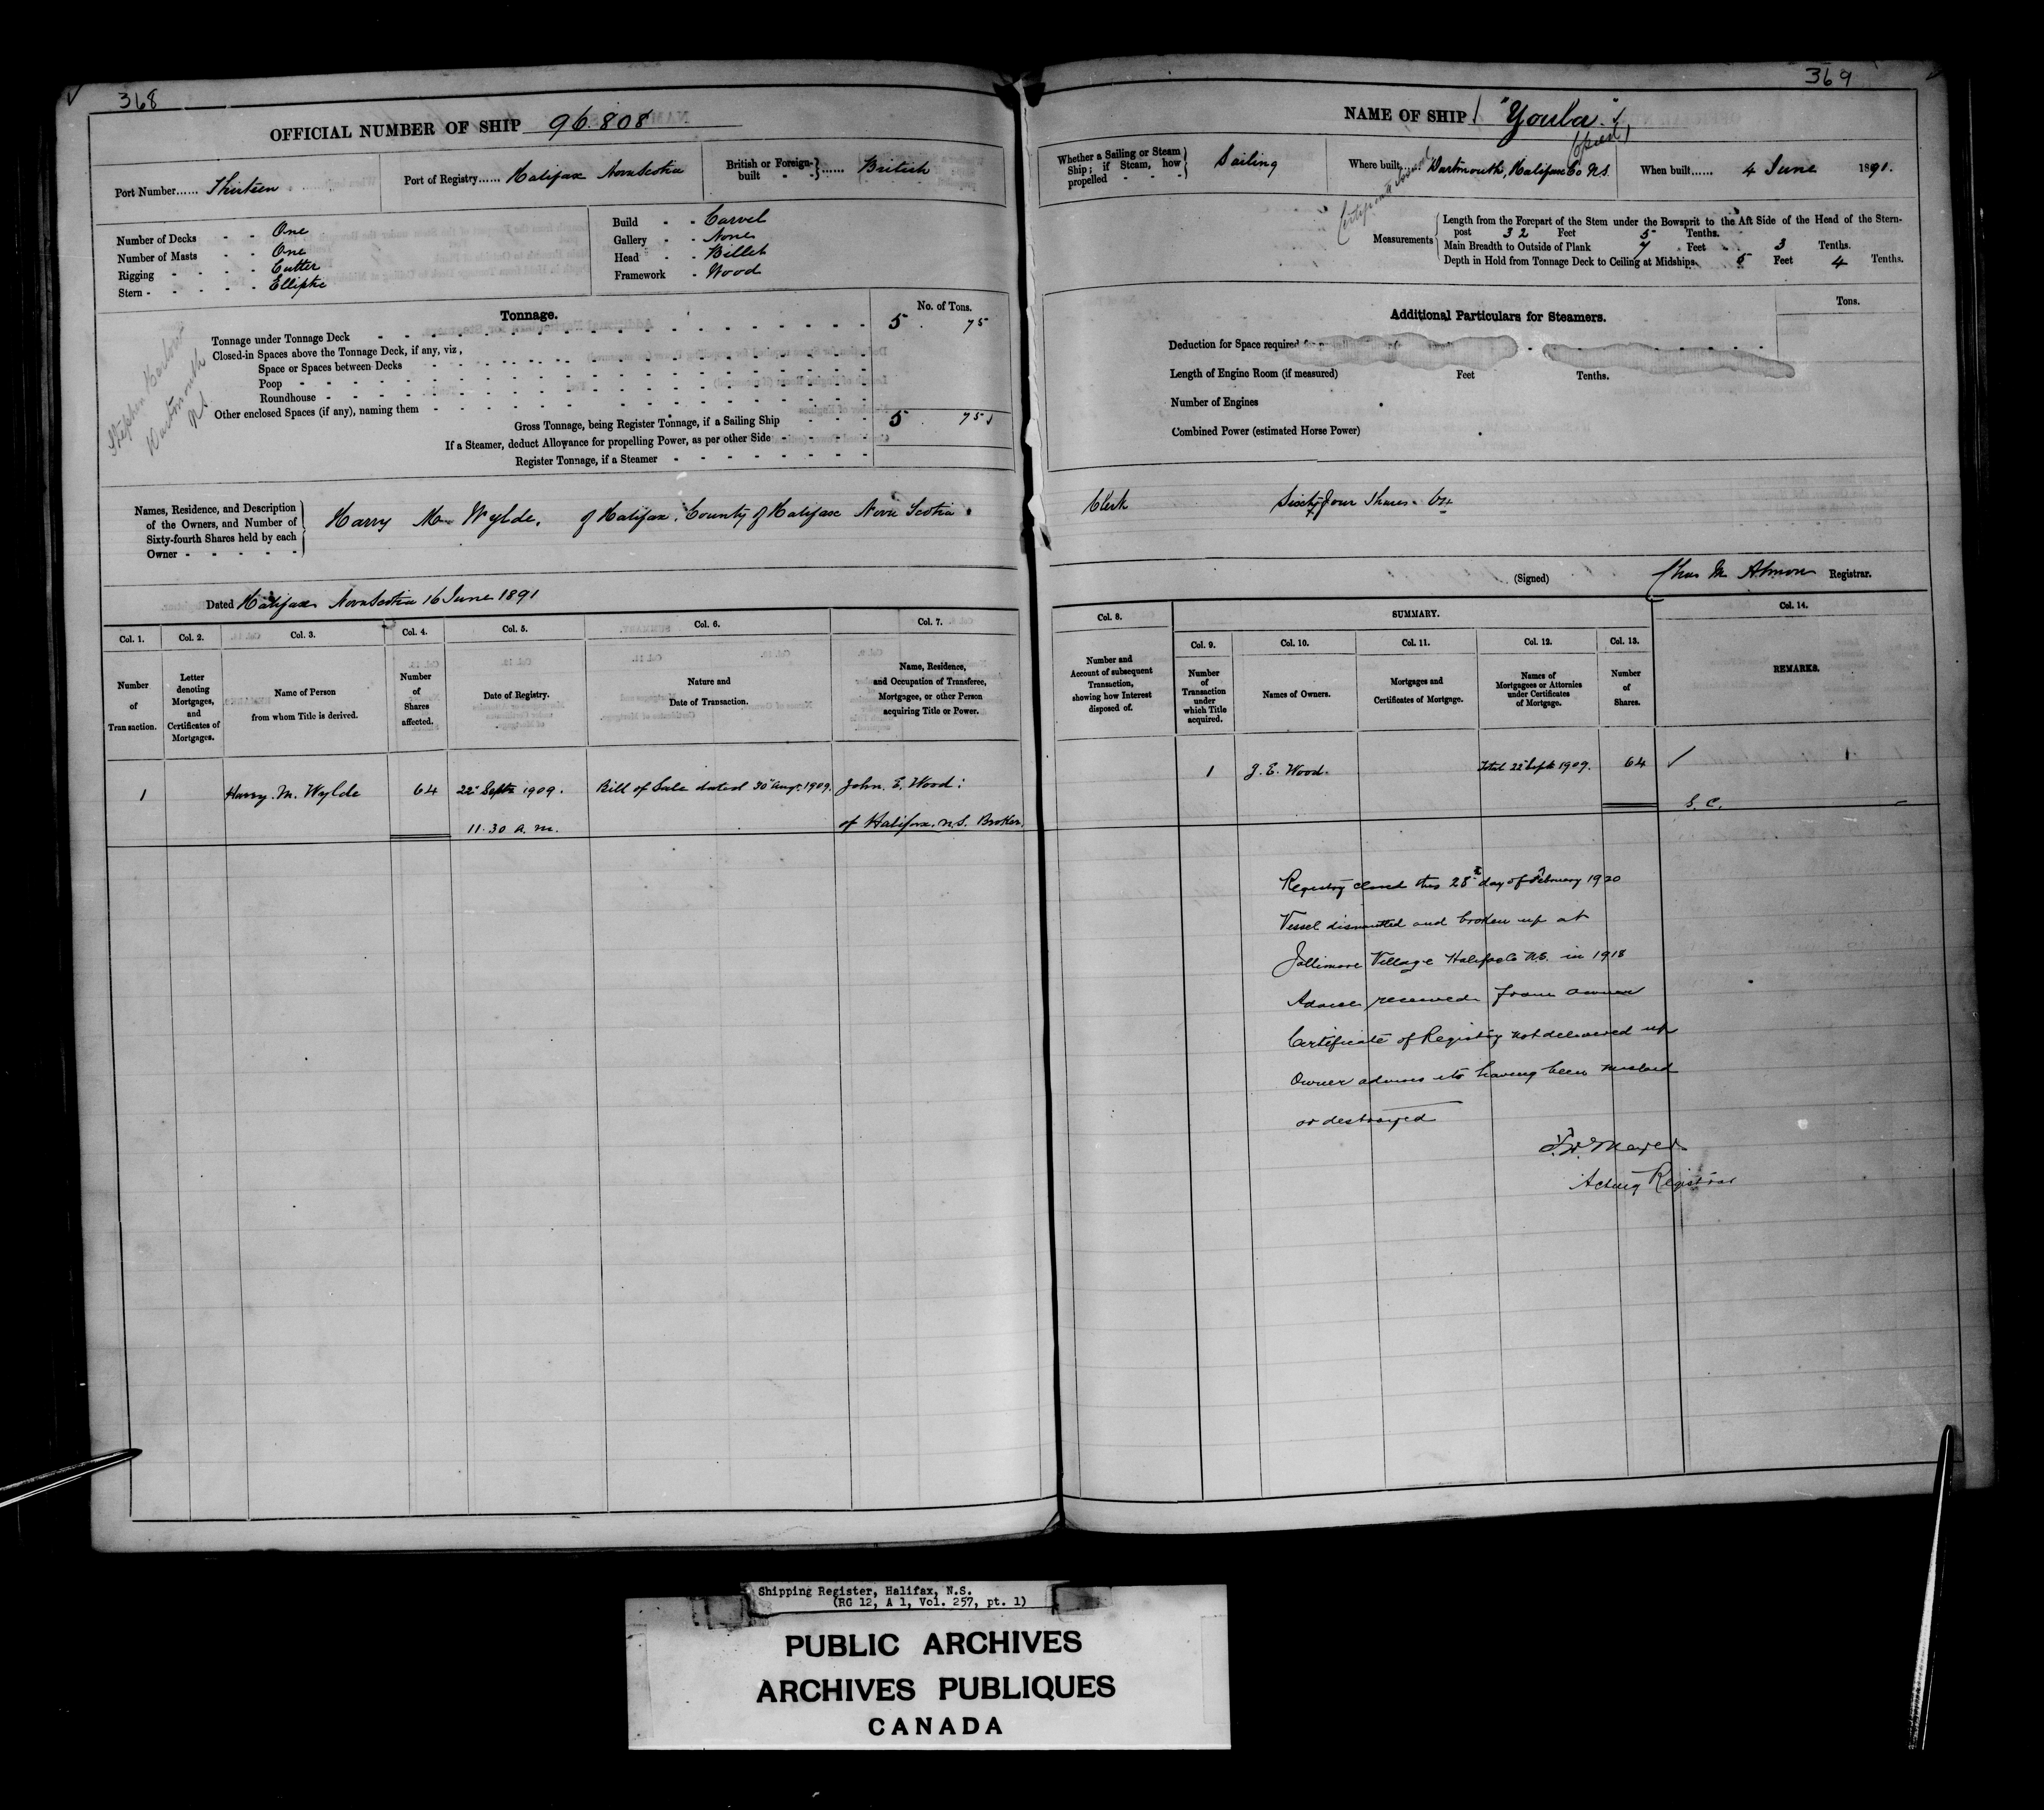 368
OFFICIAL NUMBER OF SHIP 96.808
Port Number...... Thirteen
Port of Registry...... Halifax Nova Scotia
British or Foreign-built - - } ...... British
Number of Decks - - One
Number of Masts - - One
Rigging - - - - Cutter
Stern - - - - - Elliptic
Build - - Carvel
Gallery - - None
Head - - Billet
Framework - Wood
Tonnage.
No. of Tons.
Tonnage under Tonnage Deck 5 . 75
Closed-in Spaces above the Tonnage Deck, if any, viz,
Space or Spaces between Decks
Poop
Roundhouse
Other enclosed Spaces (if any), naming them
Gross Tonnage, being Register Tonnage, if a Sailing Ship 5 . 75
If a Steamer, deduct Allowance for propelling Power, as per other Side
Register Tonnage, if a Steamer
Stephen
Dartmouth
N.S.
Names, Residence, and Description
of the Owners, and Number of
Sixty-fourth Shares held by each
Owner - - - - -
Harry M Wylde, of Halifax, County of Halifax Nova Scotia.
Dated Halifax Nova Scotia 16 June 1891
Col. 1. Col. 2. Col. 3. Col. 4. Col. 5. Col. 6. Col. 7.
Number of Transaction.
Letter denoting Mortgages, and Certificates of Mortgages.
Name of Person from whom Title is derived.
Number of Shares affected.
Date of Registry.
Nature and Date of Transaction.
Name, Residence, and Occupation of Transferee, Mortgagee, or other Person acquiring Title or Power.
1 Harry. M. Wylde 64 22nd Septr 1909. Bill of Sale dated 30th Augt. 1909. John. E. Wood:
11.30 a.m. of Halifax. N.S. Broker.
369
NAME OF SHIP "Youla."
Whether a Sailing or Steam Ship; if Steam, how propelled - - - Sailing
Where built...... Dartmouth, Halifax Co N.S.
When built...... 4 June 1891.
Measurements
Length from the Forepart of the Stem under the Bowsprit to the Aft Side of the Head of the Stern-
post 32 Feet 5 Tenths.
Main Breadth to Outside of Plank 7 Feet 3 Tenths.
Depth in Hold from Tonnage Deck to Ceiling at Midships 5 Feet 4 Tenths.
Additional Particulars for Steamers.
Tons.
Deduction for Space required for
Length of Engine Room (if measured) Feet Tenths.
Number of Engines
Combined Power (estimated Horse Power)
Clerk Sixty four Shares. 64
(Signed) Chas M Almon Registrar.
Col. 8. SUMMARY. Col. 14.
Col. 9. Col. 10. Col. 11. Col. 12. Col. 13.
Number and Account of subsequent Transaction, showing how Interest disposed of.
Number of Transaction under which Title acquired.
Names of Owners.
Mortgages and Certificates of Mortgage.
Names of Mortgagees or Attornies under Certificates of Mortgage.
Number of Shares.
REMARKS.
1 J. E. Wood. Total 22nd Sept 1909. 64
S. C.
Registry closed this 28th day of February 1920
Vessel dismantled and broken up at
Jollimore Village Halifax Co N.S. in 1918
Advice received from owner
Certificate of Registry not delivered up
Owner advises its having been mislaid
or destroyed
Acting Registrar
Shipping Register, Halifax, N.S.
(RG 12, A 1, Vol. 257, pt. 1)
PUBLIC ARCHIVES
ARCHIVES PUBLIQUES
CANADA